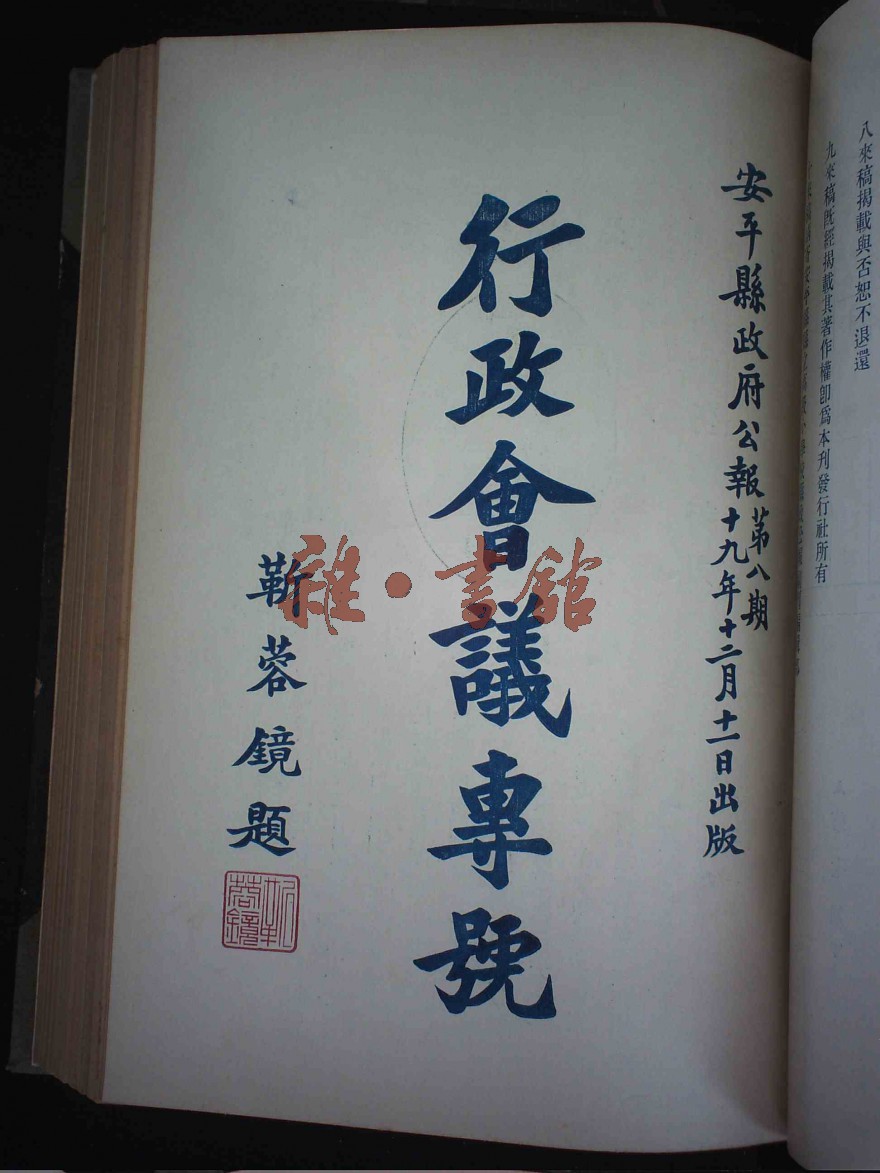 八來稿揭載與否恕不退還
九來稿旣經揭載其著作權卽爲本刊發行社所有
安平縣政府公報第八期
十九年十二月十一日出版
行政會議專號
靳蓉鏡題
靳蓉鏡
雜·書館